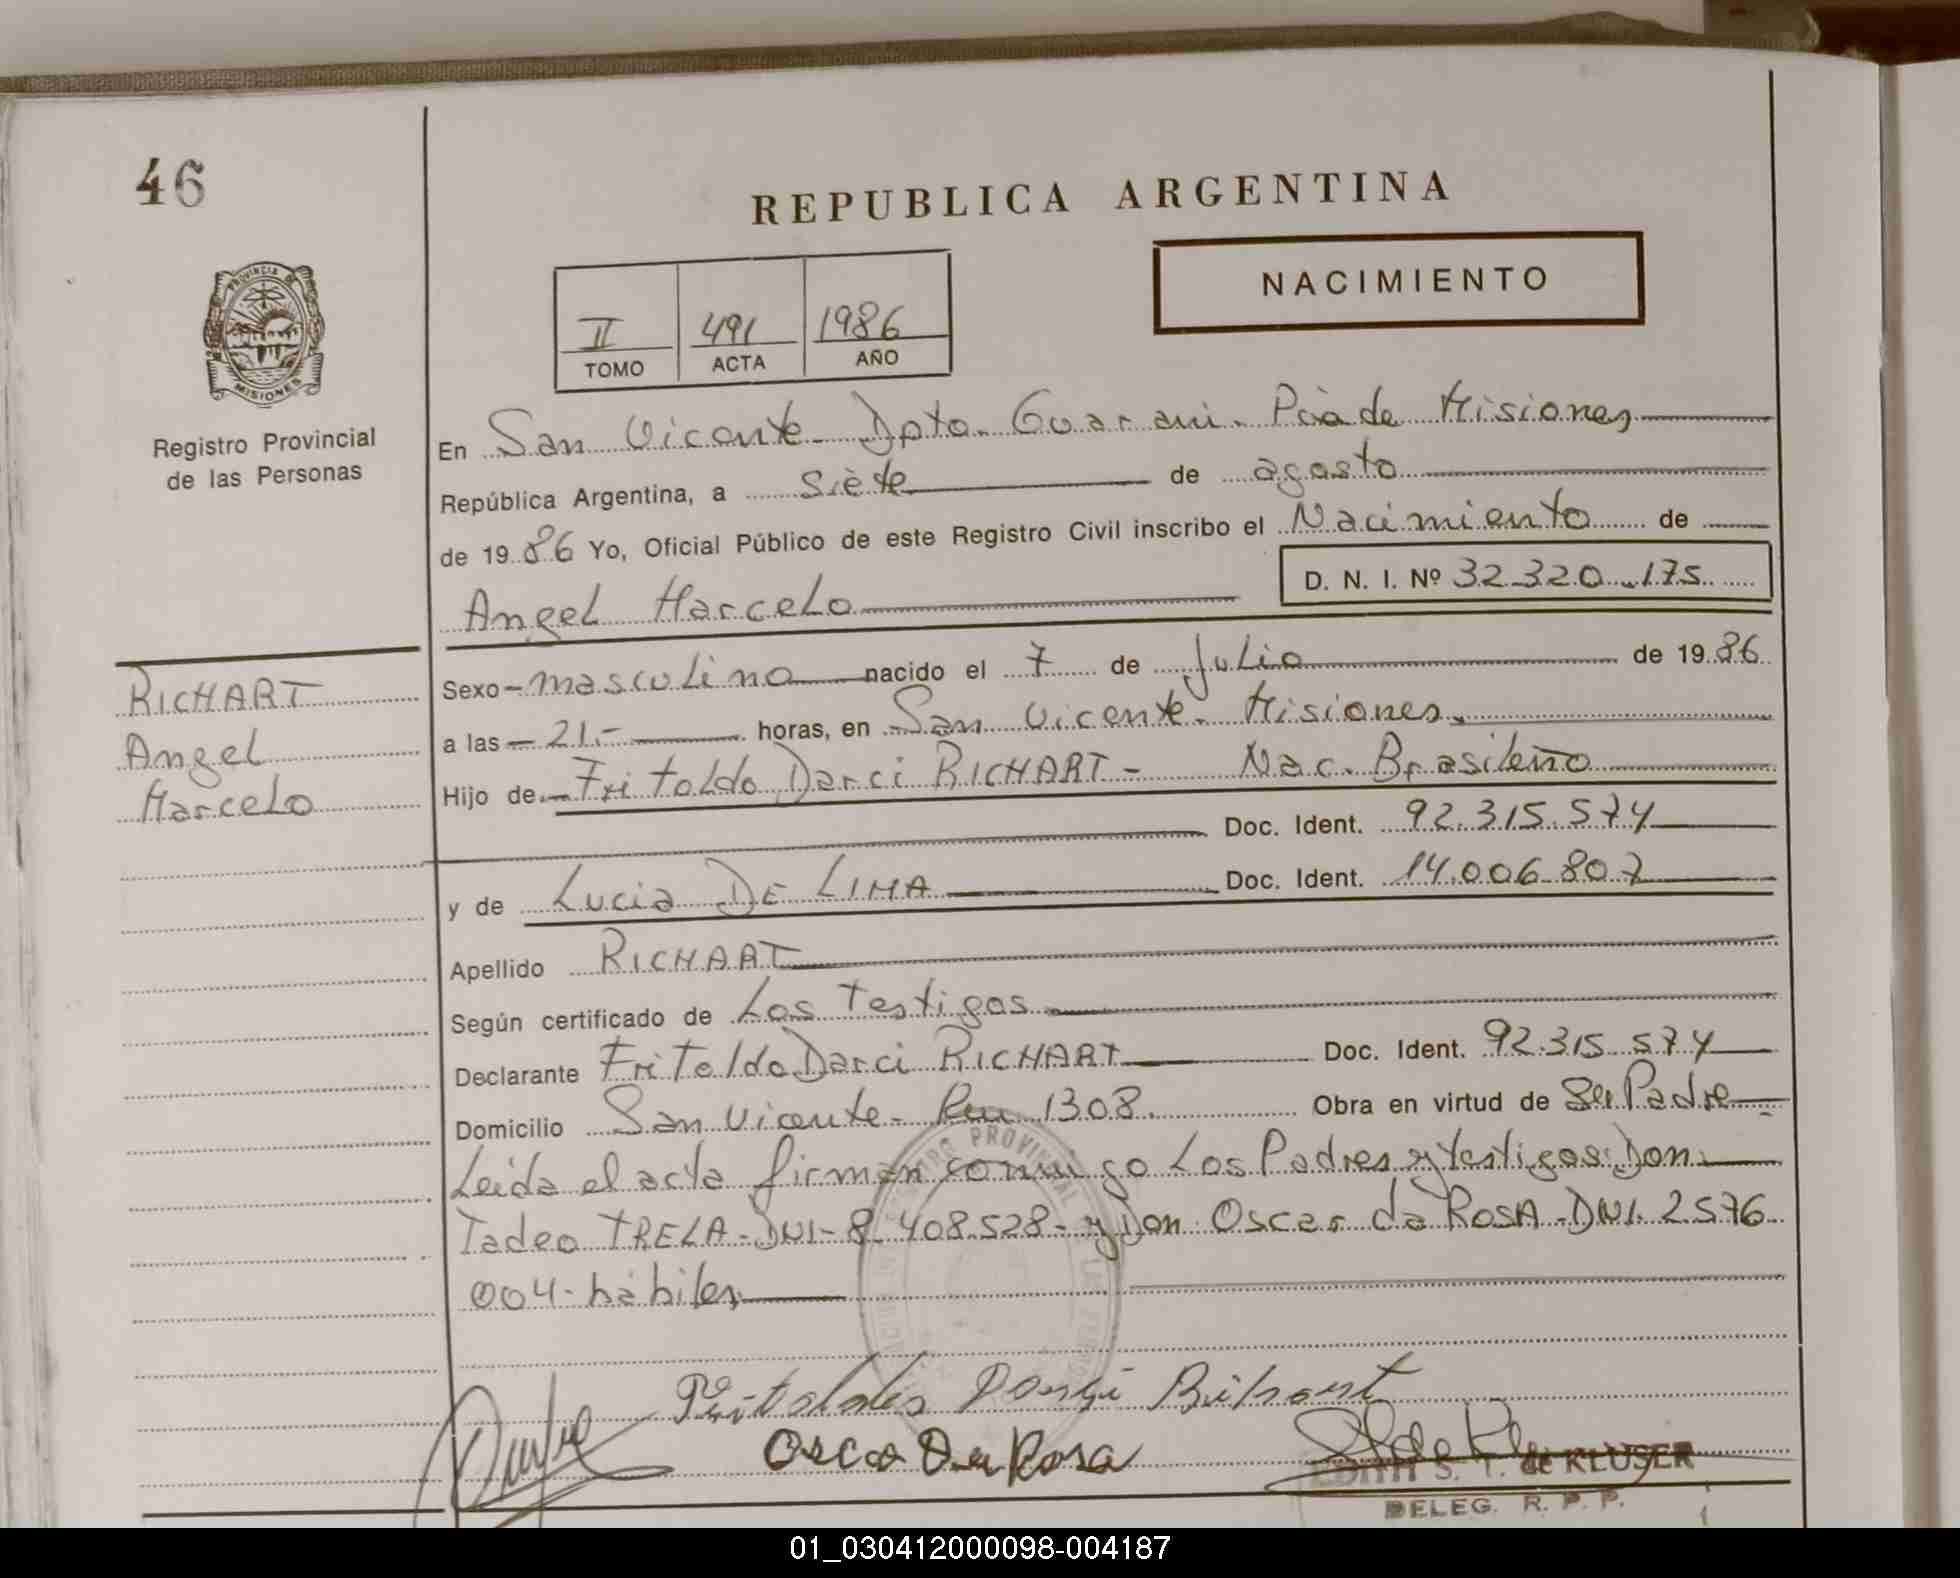 46
REPUBLICA ARGENTINA
NACIMIENTO
II 491 1986
TOMO ACTA AÑO
PROVINCIA DE MISIONES
Registro Provincial
de las Personas
En San Vicente Dpto. Guarani. Pcia de Misiones
República Argentina, a siete de agosto
de 1986 Yo, Oficial Público de este Registro Civil inscribo el Nacimiento de
D. N. I. Nº 32.320.175
Angel Marcelo
RICHART
Angel
Marcelo
Sexo - masculino nacido el 7 de Julio de 1986
a las - 21.- horas, en San Vicente. Misiones.
Hijo de Fritoldo Darci RICHART - Nac. Brasileño
Doc. Ident. 92.315.574
y de Lucia DE LIMA Doc. Ident. 14.006.807
Apellido RICHART
Según certificado de Los Testigos
Declarante Fritoldo Darci RICHART Doc. Ident. 92.315.574
Domicilio San Vicente - 1308. Obra en virtud de Su Padre
Leida el acta firman conmigo Los Padres y testigos: Don
Tadeo TRELA - DNI - 8.408.528 - y Don Oscar da ROSA - DNI. 2576
004 - hábiles
Oscar Da Rosa
EDITH S. T. de KLUSER
DELEG. R. P. P.
01_030412000098-004187